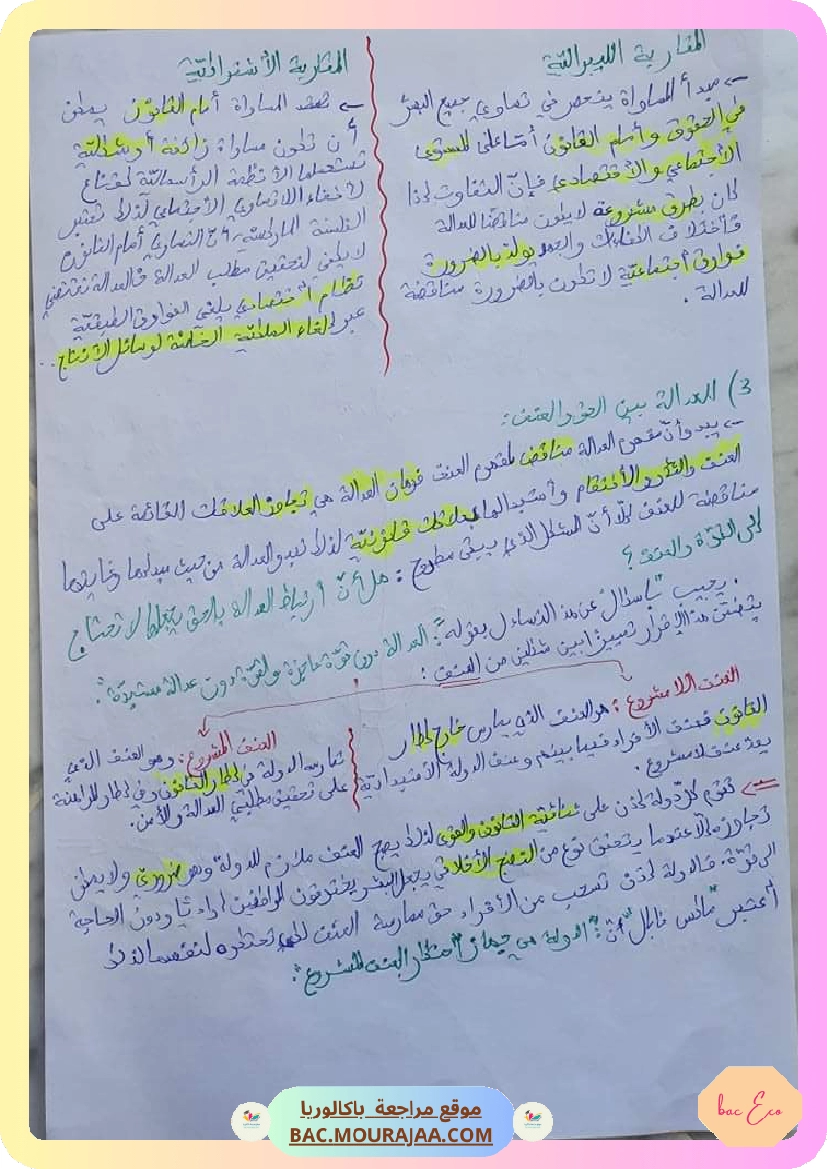 المقاربة الليبرالية
← مبدأ المساواة ينحصر في تساوي جميع البشر
في الحقوق وأمام القانون أمّا على المستوى
الاجتماعي والاقتصادي فإنّ التفاوت إذا
كان بطرق مشروعة لا يكون مناقضا للعدالة
فاختلاف الملكات والجهد يولد بالضرورة
فوارق اجتماعية لا تكون بالضرورة مناقضة
للعدالة.
المقاربة الاشتراكية
← تنتقد المساواة أمام القانون يمكن
أن تكون مساواة زائفة أو شكلية
تستعملها الأنظمة الرأسمالية كقناع
لإخفاء اللاتساوي الاجتماعي لذلك تعتبر
الفلسفة الماركسية أنّ التساوي أمام القانون
لا يكفي لتحقيق مطلب العدالة فالعدالة تقتضي
نظام اقتصادي يلغي الفوارق الطبقية
عبر إلغاء الملكية الخاصة لوسائل الإنتاج..
3) العدالة بين الحق والعنف:
← يبدو أنّ مفهوم العدالة مناقض لمفهوم العنف فرهان العدالة هي تجاوز العلاقات القائمة على
العنف والثأر والانتقام واستبدالها بعلاقات قانونية لذلك تبدو العدالة من حيث مبدئها وغايتها
مناقضة للعنف إلّا أنّ المشكل الذي يبقى مطروح: هل أنّ ارتباط العدالة بالحق يجعلها لا تحتاج
إلى القوّة والعنف؟
. يجيب باسكال عن هذا التساؤل بقوله: "العدالة دون قوّة عاجزة والقوّة دون عدالة مستبدّة".
يتضمّن هذا الإقرار تمييزا بين شكلين من العنف:
العنف اللامشروع: هو العنف الذي يمارس خارج إطار
القانون فعنف الأفراد فيما بينهم وعنف الدولة الاستبدادية
يعدّ عنف لا مشروع.
العنف المشروع: وهو العنف الذي
تمارسه الدولة في إطار القانون وفي إطار المراهنة
على تحقيق مطلبي العدالة والأمن.
← تقوم كل دولة إذن على ثنائية القانون والقوى لذلك يصبح العنف ملازم للدولة وهو ضروري ولا يمكن
تجاوزه إلّا عندما يتحقق نوع من النضج الأخلاقي يجعل البشر يحترمون المواطنين إراديّا ودون الحاجة
الى قوّة. فالدولة إذن تسحب من الأفراد حق ممارسة العنف لكي تحتكره لنفسها لذلك
أعتبر "ماكس فايبر" أنّ: "الدولة هي جهاز احتكار العنف المشروع".
موقع مراجعة باكالوريا
BAC.MOURAJAA.COM
bac Eco